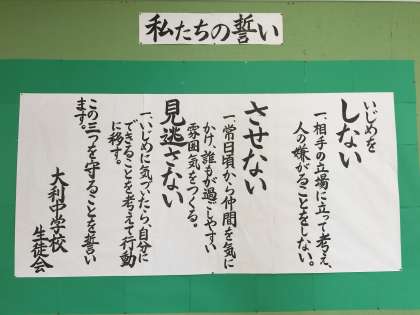 私たちの誓い
いじめを
しない
一、相手の立場に立って考え、
人の嫌がることをしない。
させない
一、常日頃から仲間を気に
かけ、誰もが過ごしやすい
雰囲気をつくる。
見逃さない
一、いじめに気づいたら、自分に
できることを考えて行動
に移す。
この三つを守ることを誓い
ます。
大利中学校
生徒会